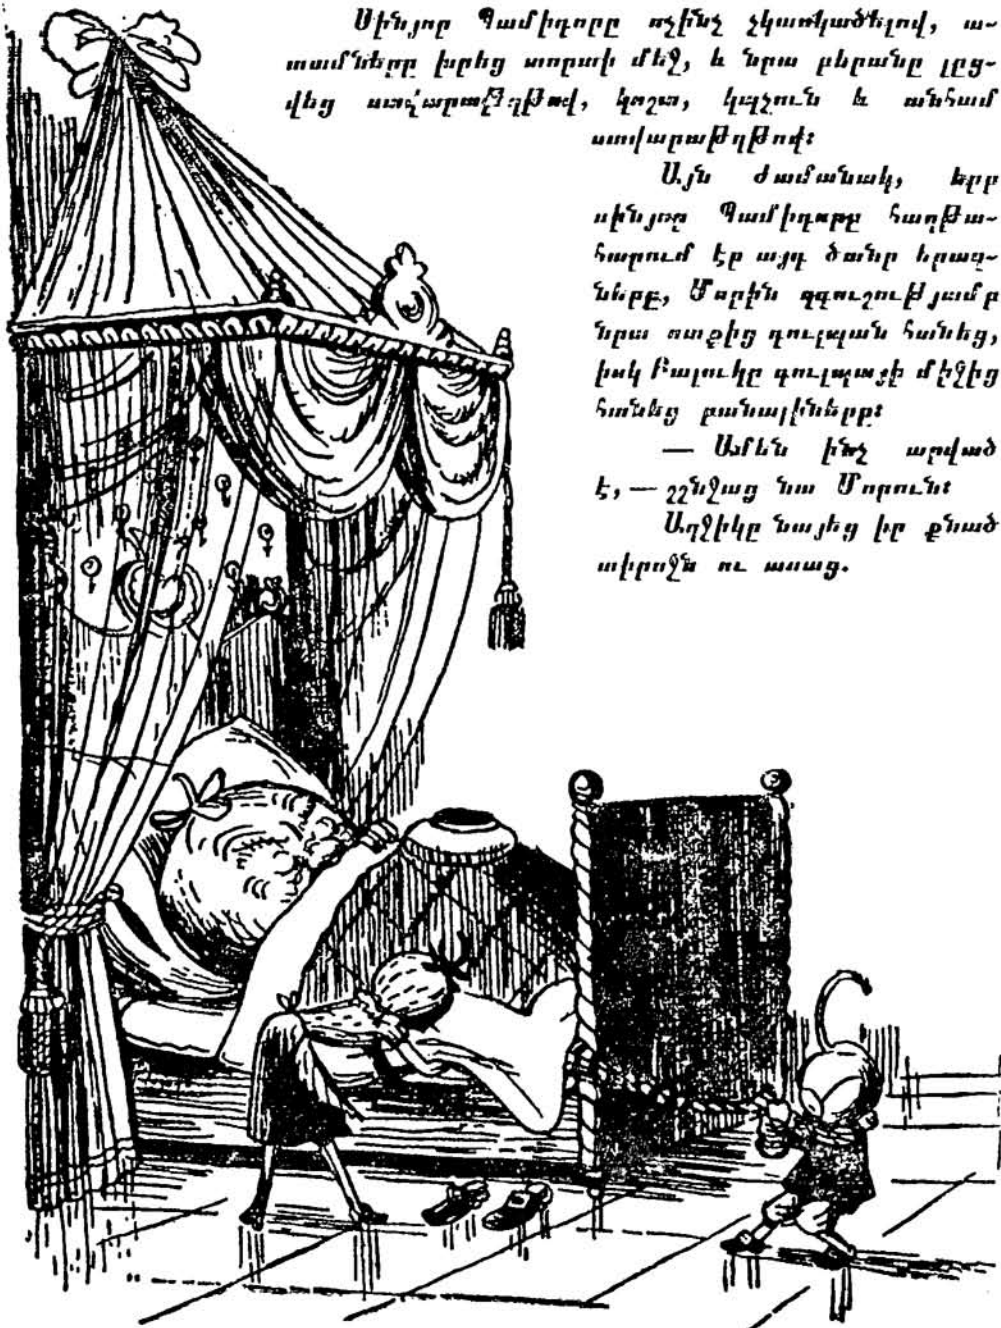 Սինյոր Պամիդորը ոչինչ չկասկածելով, ա-
տամները խրեց տորթի մեջ, և նրա բերանը լըց-
վեց ստվարաթղթով, կոշտ, կպչուն և անհամ
ստվարաթղթով:
Այն ժամանակ, երբ
սինյոր Պամիդորը հաղթա-
հարում էր այդ ծանր երազ-
ները, Մորին զգուշությամբ
նրա ոտքից գուլպան հանեց,
իսկ Բալուկը գուլպայի միջից
հանեց բանալիները:
— Ամեն ինչ արված
է, — շշնջաց նա Մորուն:
Աղջիկը նայեց իր քնած
տիրոջն ու ասաց.